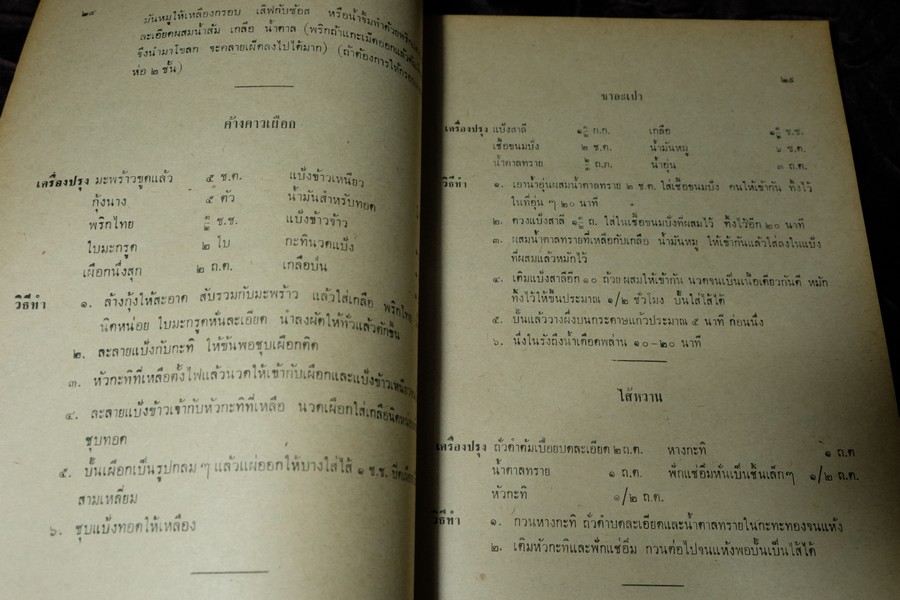 ๒๔
มันหมูให้เหลืองกรอบ เสิฟกับซ้อส หรือน้ำจิ้มทำด้วยพริก
ละเอียดผสมน้ำส้ม เกลือ น้ำตาล (พริกถ้าแกะเม็ดออกแล้ว
จึงนำมาโขลก จะคลายเผ็ดลงไปได้มาก) (ถ้าต้องการให้กรอบ
ห่อ ๒ ชั้น)
ค้างคาวเผือก
เครื่องปรุง มะพร้าวขูดแล้ว ๕ ช.ต. แป้งข้าวเหนียว
กุ้งนาง ๕ ตัว น้ำมันสำหรับทอด
พริกไทย ช.ช. แป้งข้าวจ้าว
ใบมะกรูด ๒ ใบ กะทินวดแป้ง
เผือกนึ่งสุก ๒ ถ.ต. เกลือป่น
วิธีทำ ๑. ล้างกุ้งให้สะอาด สับรวมกับมะพร้าว แล้วใส่เกลือ พริกไทย
นิดหน่อย ใบมะกรูดหั่นละเอียด นำลงผัดให้ทั่วแล้วตักขึ้น
๒. ละลายแป้งกับกะทิ ให้ข้นพอชุบเผือกติด
๓. หัวกะทิที่เหลือตั้งไฟแล้วนวดให้เข้ากับเผือกและแป้งข้าวเหนียว
๔. ละลายแป้งข้าวเจ้ากับหัวกะทิที่เหลือ นวดเผือกใส่เกลือนิดหน่อย
ชุบทอด
๕. ปั้นเผือกเป็นรูปกลม ๆ แล้วแผ่ออกให้บางใส่ไส้ ๑ ช.ช.
สามเหลี่ยม
๖. ชุบแป้งทอดให้เหลือง
๒๕
ซาละเปา
เครื่องปรุง แป้งสาลี ก.ก. เกลือ ช.ช.
เชื้อขนมปัง ๒ ช.ต. น้ำมันหมู ๖ ช.ต.
น้ำตาลทราย ถ.ต. น้ำอุ่น ๓ ถ.ต.
วิธีทำ ๑. เอาน้ำอุ่นผสมน้ำตาลทราย ๒ ช.ต. ใส่เชื้อขนมปัง คนให้เข้ากัน ทิ้งไว้
ในที่อุ่น ๆ ๒๐ นาที
๒. ตวงแป้งสาลี ถ. ใส่ในเชื้อขนมปังที่ผสมไว้ ทิ้งไว้อีก ๒๐ นาที
๓. ผสมน้ำตาลทรายที่เหลือกับเกลือ น้ำมันหมู ให้เข้ากันแล้วใส่ลงในแป้ง
ที่ผสมแล้วหมักไว้
๔. เติมแป้งสาลีอีก ๑๐ ถ้วย ผสมให้เข้ากัน นวดจนเป็นเนื้อเดียวกันดี หมัก
ทิ้งไว้ให้ขึ้นประมาณ ๑/๒ ชั่วโมง ปั้นใส่ไส้ได้
๕. ปั้นแล้ววางผึ่งบนกระดาษแก้วประมาณ ๕ นาที ก่อนนึ่ง
๖. นึ่งในรังถึงน้ำเดือดพล่าน ๑๐-๒๐ นาที
ไส้หวาน
เครื่องปรุง ถั่วดำต้มเปื่อยบดละเอียด ๒ ถ.ต. หางกะทิ ๑ ถ.ต
น้ำตาลทราย ๑ ถ.ต. ฟักแช่อิ่มหั่นเป็นชิ้นเล็กๆ ๑/๒ ถ.ต.
หัวกะทิ ๑/๒ ถ.ต.
วิธีทำ ๑. กวนหางกะทิ ถั่วดำบดละเอียดและน้ำตาลทรายในกะทะทองจนแห้ง
๒. เติมหัวกะทิและฟักแช่อิ่ม กวนต่อไปจนแห้งพอปั้นเป็นไส้ได้